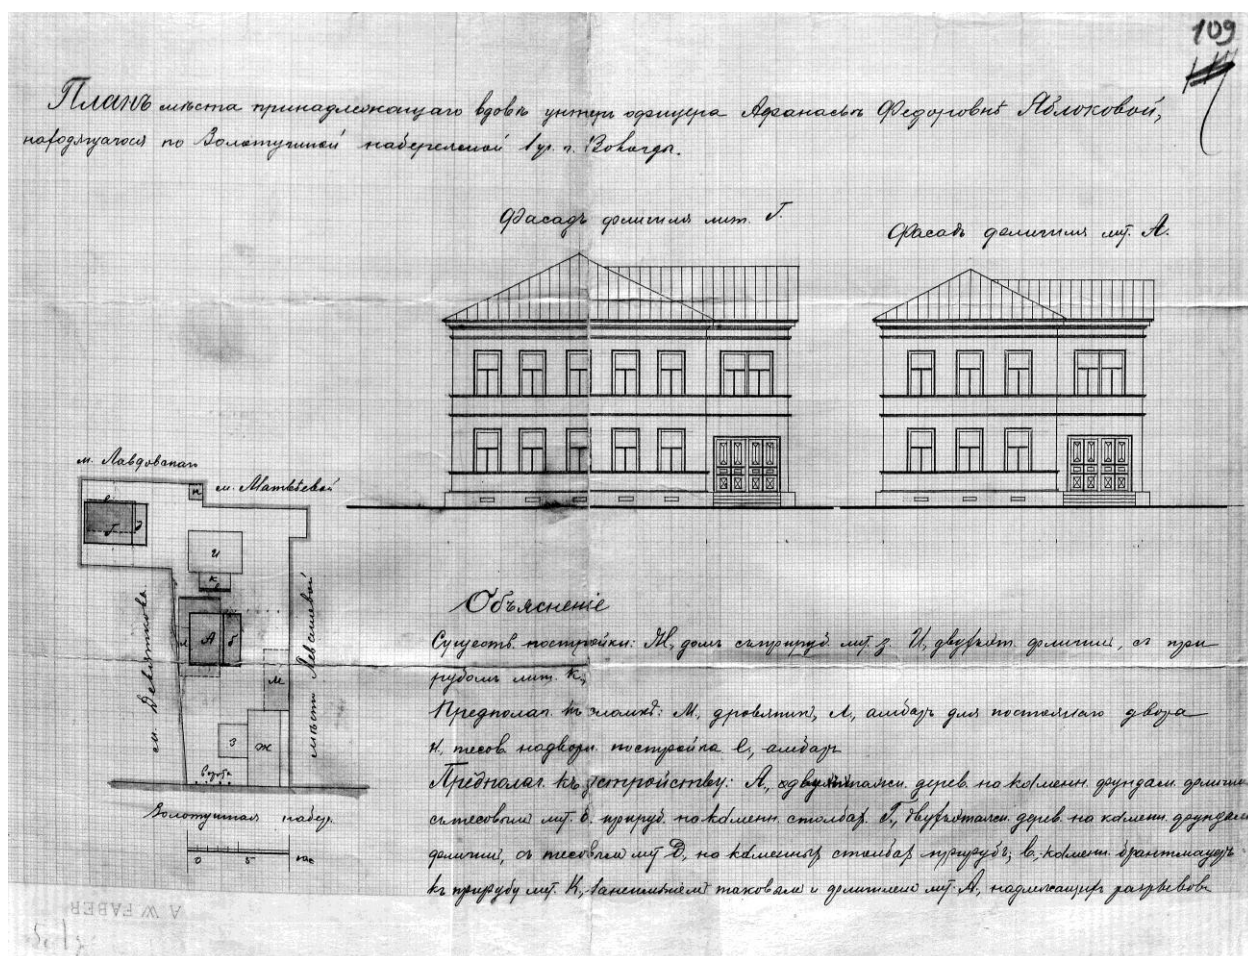 109
Планъ мѣста принадлежащаго вдовѣ унтеръ офицера Афанасьѣ Федоровнѣ Яблоковой,
находящагося по Золотушной набережной 1 уч. г. Вологды.
Фасадъ флигиля лит. Г.
Фасадъ флигиля лит. А.
м. Лавдовскаго
м. Матвѣевой
н
е
Г
д
И
к
в
л
А
б
м. Девяткова.
мѣсто Левашевой
М
З
Ж
Ворота
Золотушная набер.
0 5 саж
Объясненіе
Существ. постройки: Ж, домъ съ прируб. лит. З. И, двухъэт. флигиль, съ при
рубомъ лит. К,
Предполаг. къ сломкѣ: М, дровяникъ, Л, амбаръ для постоялаго двора
Н, тесов. надворн. постройка Е, амбаръ
Предполаг. къ устройству: А, двухъэтажн. дерев. на каменн. фундам. флигиль
съ тесовымъ лит. б. прируб. на каменн. столбах. Г, двухъэтажн. дерев. на каменн. фундам.
флигиль, съ тесовымъ лит. Д, на каменныхъ столбах прирубъ; в, каменн. брантмауеръ
къ прирубу лит. К, за неимѣніемъ таковымъ и флигилемъ лит. А, надлежащихъ разрывовъ
A.W. FABER